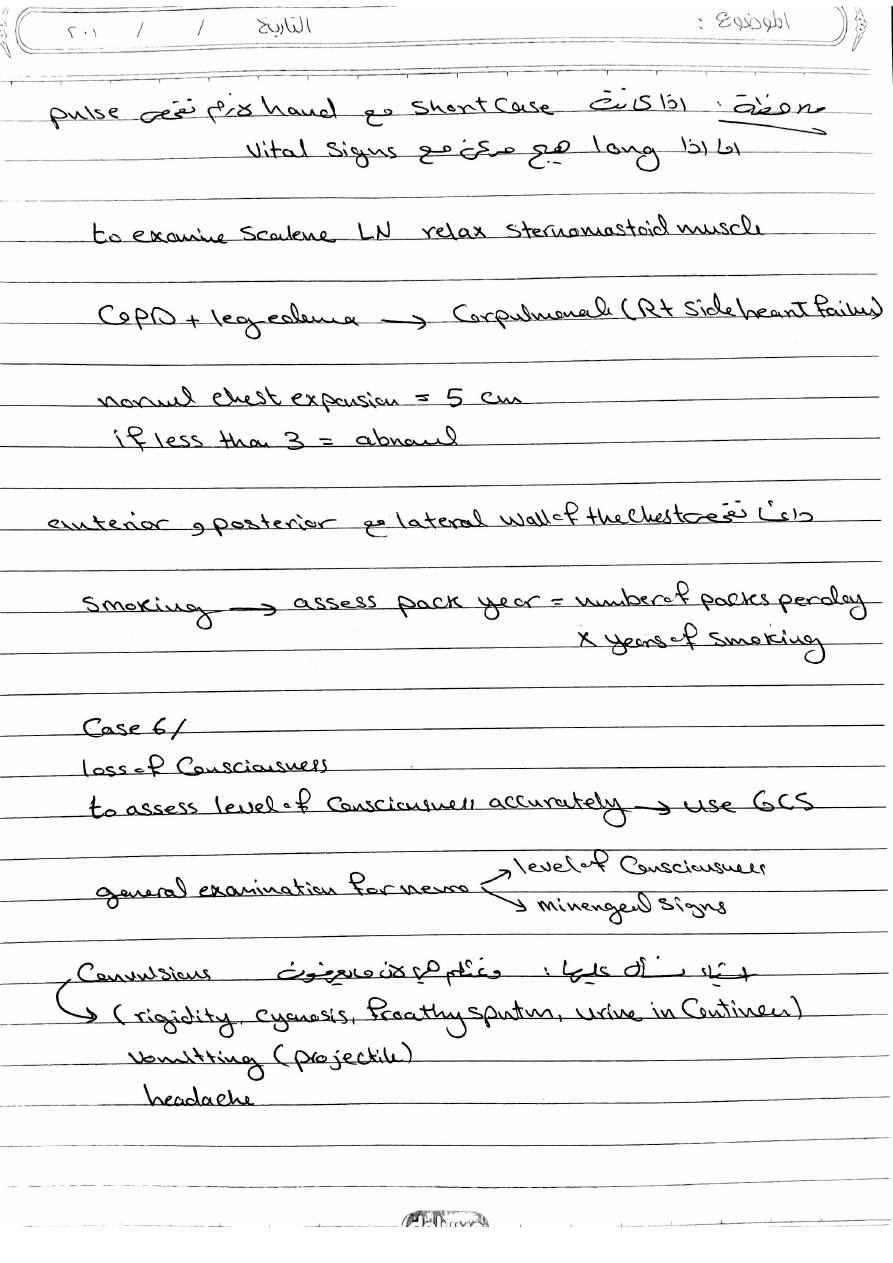 الموضوع : التاريخ / / ٢٠١
ملاحظة : اذا كانت short Case مع hand لازم نفحص pulse
اما اذا long هيج ممكن مع Vital Signs
to examine Scalene LN relax sternomastoid muscle
COPD + leg edema → Corpulmonale (Rt Side heart failure)
normal chest expansion = 5 cm
if less than 3 = abnormal
دائماً نفحص lateral wall of the chest مع posterior و anterior
Smoking → assess pack year = number of packs per day
x years of smoking
Case 6/
loss of Consciousness
to assess level of Consciousness accurately → use GCS
general examination for neuro → level of Consciousness
→ minengeal signs
اشياء نسأل عليها :
Convulsions
→ (rigidity, cyanosis, froathy sputum, urine in Continence)
Vomitting (projectile)
headache